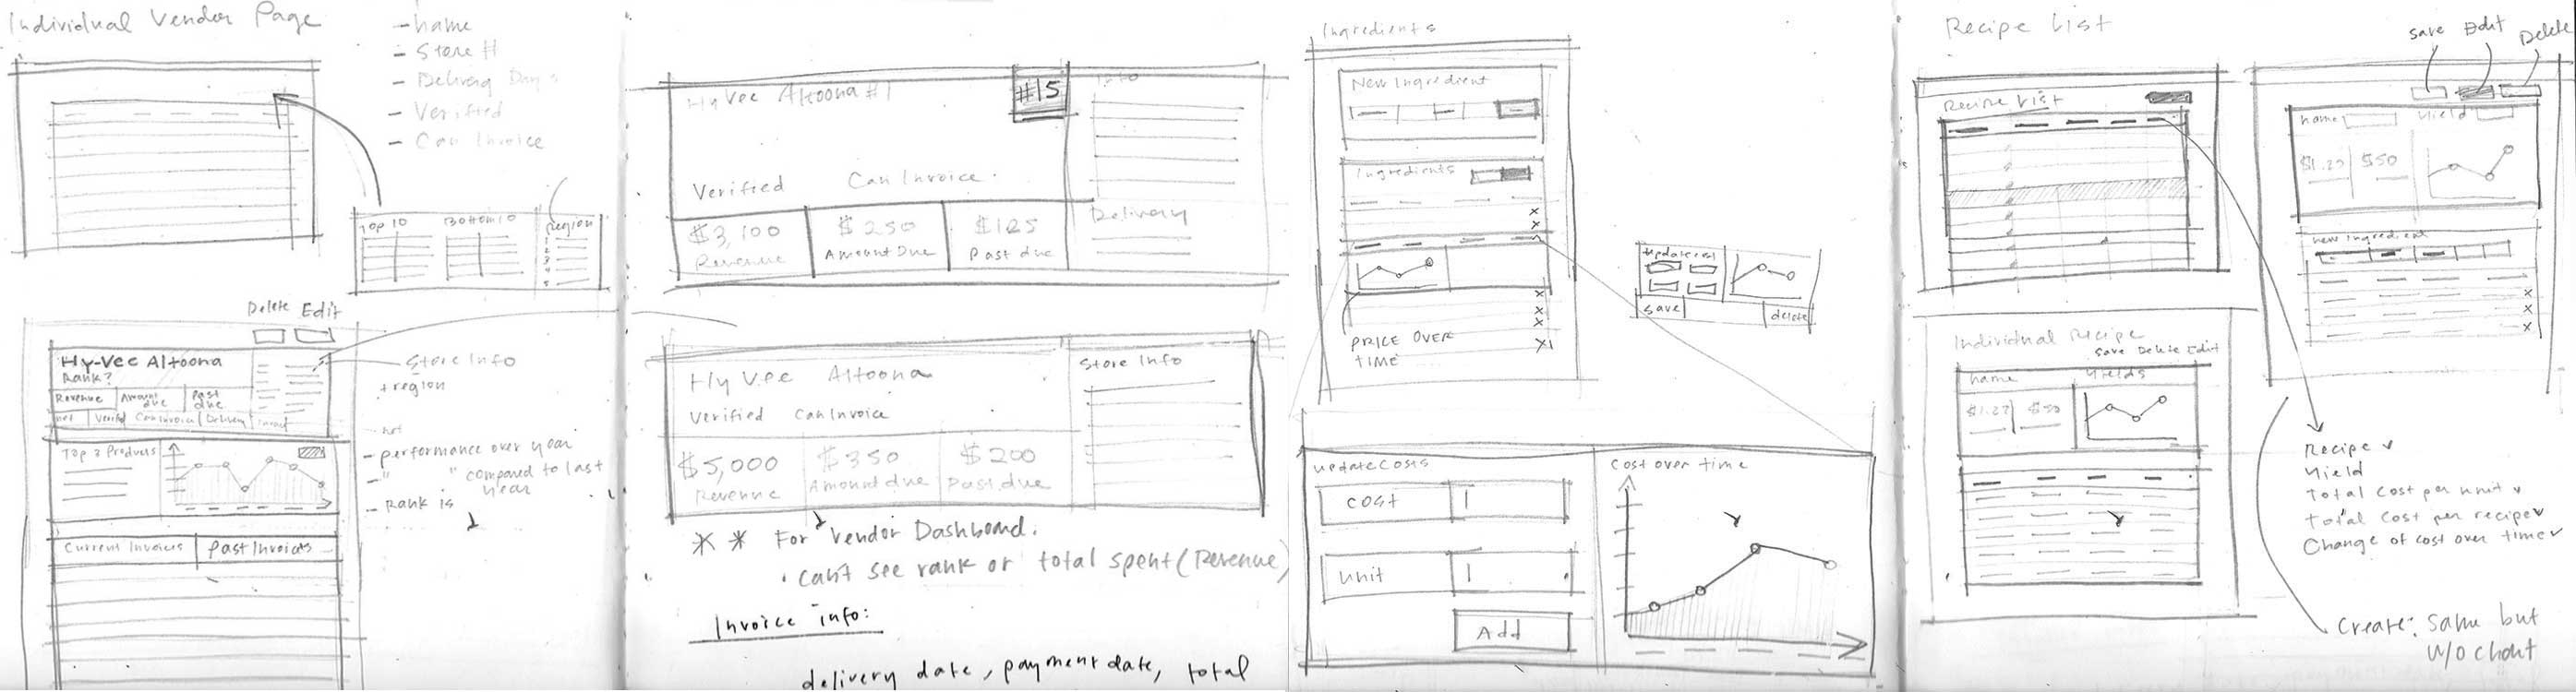 Individual Vendor Page
- name
- Store #
- Delivery Days
- Verified
- Can Invoice
Top 10
Bottom 10
Region
1
2
3
4
5
Delete Edit
Hy-Vee Altoona
Rank?
Revenue
Amount due
Past due
Verified
Can Invoice
Delivery
Top 3 Products
Current Invoices
Past Invoices
- Store Info
+ region
- performance over year
- " " compared to last year
- Rank is
Hy Vee Altoona #1
#15
Info
Verified
Can Invoice
Delivery
$3,100
Revenue
$250
Amount Due
$125
Past due
Hy Vee Altoona
Verified
Can Invoice
Store Info
$5,000
Revenue
$350
Amount due
$200
Past due
** For Vendor Dashboard.
· can't see rank or total spent (Revenue)
Invoice info:
delivery date, payment date, total
Ingredients
New Ingredient
Ingredients
x
x
x
x
x
x
PRICE OVER
TIME
Update cost
save
delete
update costs
cost
unit
Add
Cost over time
Recipe List
save Edit Delete
Recipe List
name
Yield
$1.27
$50
new Ingredient
x
x
x
Individual Recipe
save Delete Edit
name
Yields
$1.27
$50
Recipe
Yield
Total Cost per unit
Total Cost per recipe
Change of cost over time
Create: Same but
w/o chart